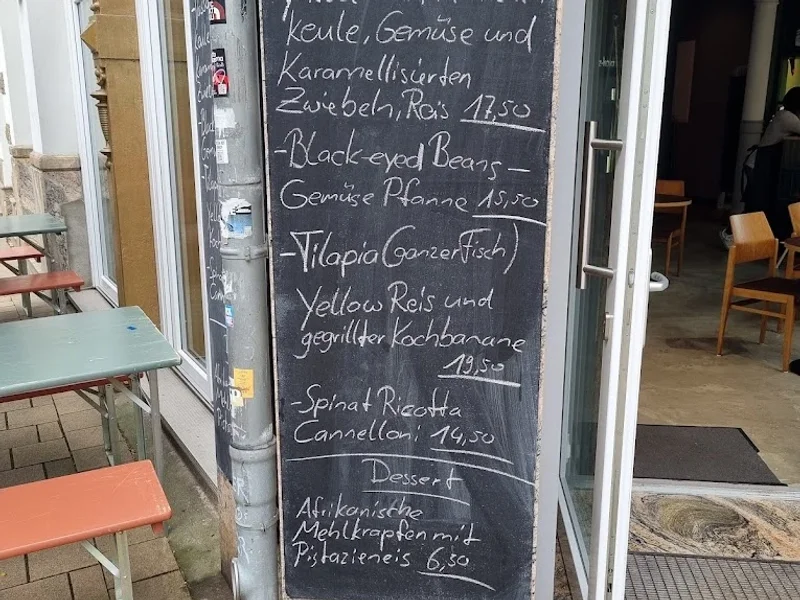 keule, Gemüse und
Karamellisierten
Zwiebeln, Reis 17,50
-Black-eyed Beans-
Gemüse Pfanne 15,50
-Tilapia (ganzer Fisch)
Yellow Reis und
gegrillter Kochbanane
19,50
-Spinat Ricotta
Cannelloni 14,50
Dessert
Afrikanische
Mehlkrapfen mit
Pistazieneis 6,50